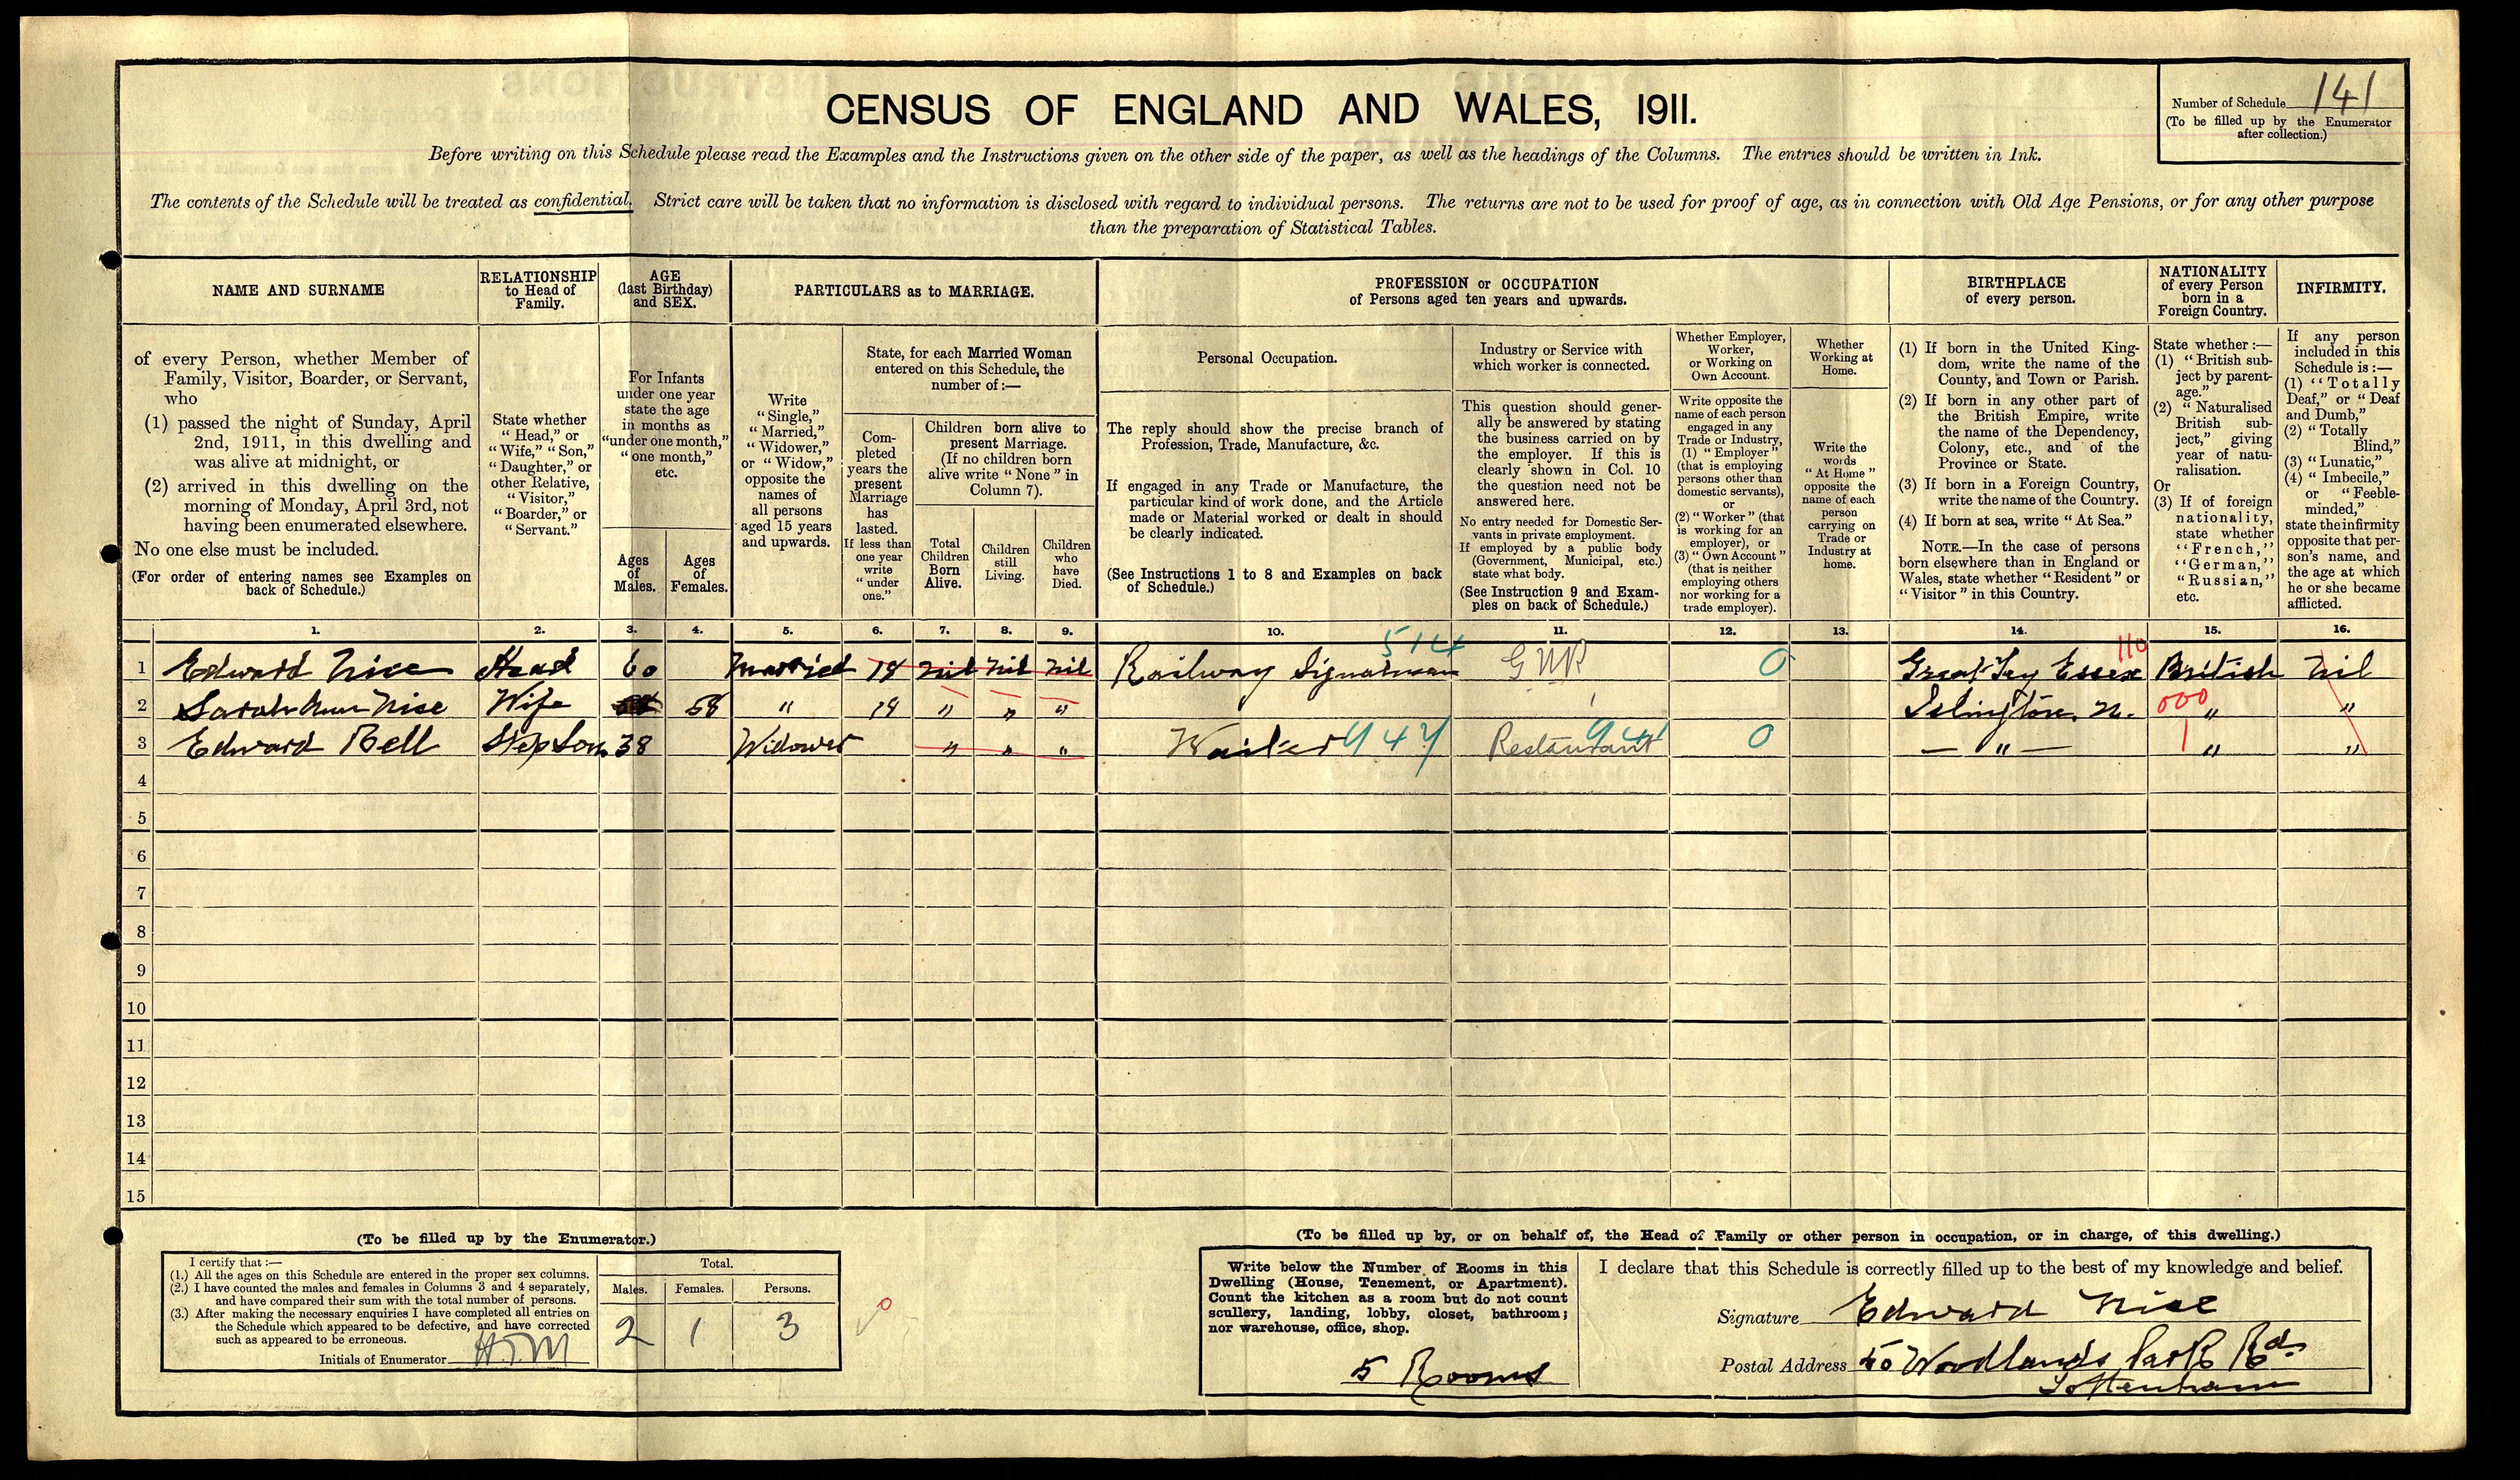 CENSUS OF ENGLAND AND WALES, 1911.
Number of Schedule 141
(To be filled up by the Enumerator
after collection.)
Before writing on this Schedule please read the Examples and the Instructions given on the other side of the paper, as well as the headings of the Columns. The entries should be written in Ink.
The contents of the Schedule will be treated as confidential. Strict care will be taken that no information is disclosed with regard to individual persons. The returns are not to be used for proof of age, as in connection with Old Age Pensions, or for any other purpose
than the preparation of Statistical Tables.
NAME AND SURNAME
of every Person, whether Member of
Family, Visitor, Boarder, or Servant,
who
(1) passed the night of Sunday, April
2nd, 1911, in this dwelling and
was alive at midnight, or
(2) arrived in this dwelling on the
morning of Monday, April 3rd, not
having been enumerated elsewhere.
No one else must be included.
(For order of entering names see Examples on
back of Schedule.)
RELATIONSHIP
to Head of
Family.
State whether
"Head," or
"Wife," "Son,"
"Daughter," or
other Relative,
"Visitor,"
"Boarder," or
"Servant."
AGE
(last Birthday)
and SEX.
For Infants
under one year
state the age
in months as
"under one month,"
"one month,"
etc.
Ages
of
Males.
Ages
of
Females.
PARTICULARS as to MARRIAGE.
Write
"Single,"
"Married,"
"Widower,"
or "Widow,"
opposite the
names of
all persons
aged 15 years
and upwards.
State, for each Married Woman
entered on this Schedule, the
number of:—
Com-
pleted
years the
present
Marriage
has
lasted.
If less than
one year
write
"under
one."
Children born alive to
present Marriage.
(If no children born
alive write "None" in
Column 7).
Total
Children
Born
Alive.
Children
still
Living.
Children
who
have
Died.
PROFESSION or OCCUPATION
of Persons aged ten years and upwards.
Personal Occupation.
The reply should show the precise branch of
Profession, Trade, Manufacture, &c.
If engaged in any Trade or Manufacture, the
particular kind of work done, and the Article
made or Material worked or dealt in should
be clearly indicated.
(See Instructions 1 to 8 and Examples on back
of Schedule.)
Industry or Service with
which worker is connected.
This question should gener-
ally be answered by stating
the business carried on by
the employer. If this is
clearly shown in Col. 10
the question need not be
answered here.
No entry needed for Domestic Ser-
vants in private employment.
If employed by a public body
(Government, Municipal, etc.)
state what body.
(See Instruction 9 and Exam-
ples on back of Schedule.)
Whether Employer,
Worker,
or Working on
Own Account.
Write opposite the
name of each person
engaged in any
Trade or Industry,
(1) "Employer"
(that is employing
persons other than
domestic servants),
or
(2) "Worker" (that
is working for an
employer), or
(3) "Own Account"
(that is neither
employing others
nor working for a
trade employer).
Whether
Working at
Home.
Write the
words
"At Home"
opposite the
name of each
person
carrying on
Trade or
Industry at
home.
BIRTHPLACE
of every person.
(1) If born in the United King-
dom, write the name of the
County, and Town or Parish.
(2) If born in any other part of
the British Empire, write
the name of the Dependency,
Colony, etc., and of the
Province or State.
(3) If born in a Foreign Country,
write the name of the Country.
(4) If born at sea, write "At Sea."
NOTE.—In the case of persons
born elsewhere than in England or
Wales, state whether "Resident" or
"Visitor" in this Country.
NATIONALITY
of every Person
born in a
Foreign Country.
State whether:—
(1) "British sub-
ject by parent-
age."
(2) "Naturalised
British sub-
ject," giving
year of natu-
ralisation.
Or
(3) If of foreign
nationality,
state whether
"French,"
"German,"
"Russian,"
etc.
INFIRMITY.
If any person
included in this
Schedule is:—
(1) "Totally
Deaf," or "Deaf
and Dumb,"
(2) "Totally
Blind,"
(3) "Lunatic,"
(4) "Imbecile,"
or "Feeble-
minded,"
state the infirmity
opposite that per-
son's name, and
the age at which
he or she became
afflicted.
1. 2. 3. 4. 5. 6. 7. 8. 9. 10. 11. 12. 13. 14. 15. 16.
1 Edward Nice Head 60 Married 19 nil nil nil Railway Signalman 514 GNR 0 Great Tey Essex 110 British Nil
2 Sarah Ann Nice Wife 58 " 19 " " " Islington. N. 000 " "
3 Edward Bell Step Son 38 Widower " " " Waiter 947 Restaurant 941 0 — " — " "
4
5
6
7
8
9
10
11
12
13
14
15
(To be filled up by the Enumerator.)
I certify that:—
(1.) All the ages on this Schedule are entered in the proper sex columns.
(2.) I have counted the males and females in Columns 3 and 4 separately,
and have compared their sum with the total number of persons.
(3.) After making the necessary enquiries I have completed all entries on
the Schedule which appeared to be defective, and have corrected
such as appeared to be erroneous.
Initials of Enumerator H.T.M
Total.
Males. Females. Persons.
2 1 3
(To be filled up by, or on behalf of, the Head of Family or other person in occupation, or in charge, of this dwelling.)
Write below the Number of Rooms in this
Dwelling (House, Tenement, or Apartment).
Count the kitchen as a room but do not count
scullery, landing, lobby, closet, bathroom;
nor warehouse, office, shop.
5 Rooms
I declare that this Schedule is correctly filled up to the best of my knowledge and belief.
Signature Edward Nice
Postal Address 50 Woodlands Park Rd.
Tottenham